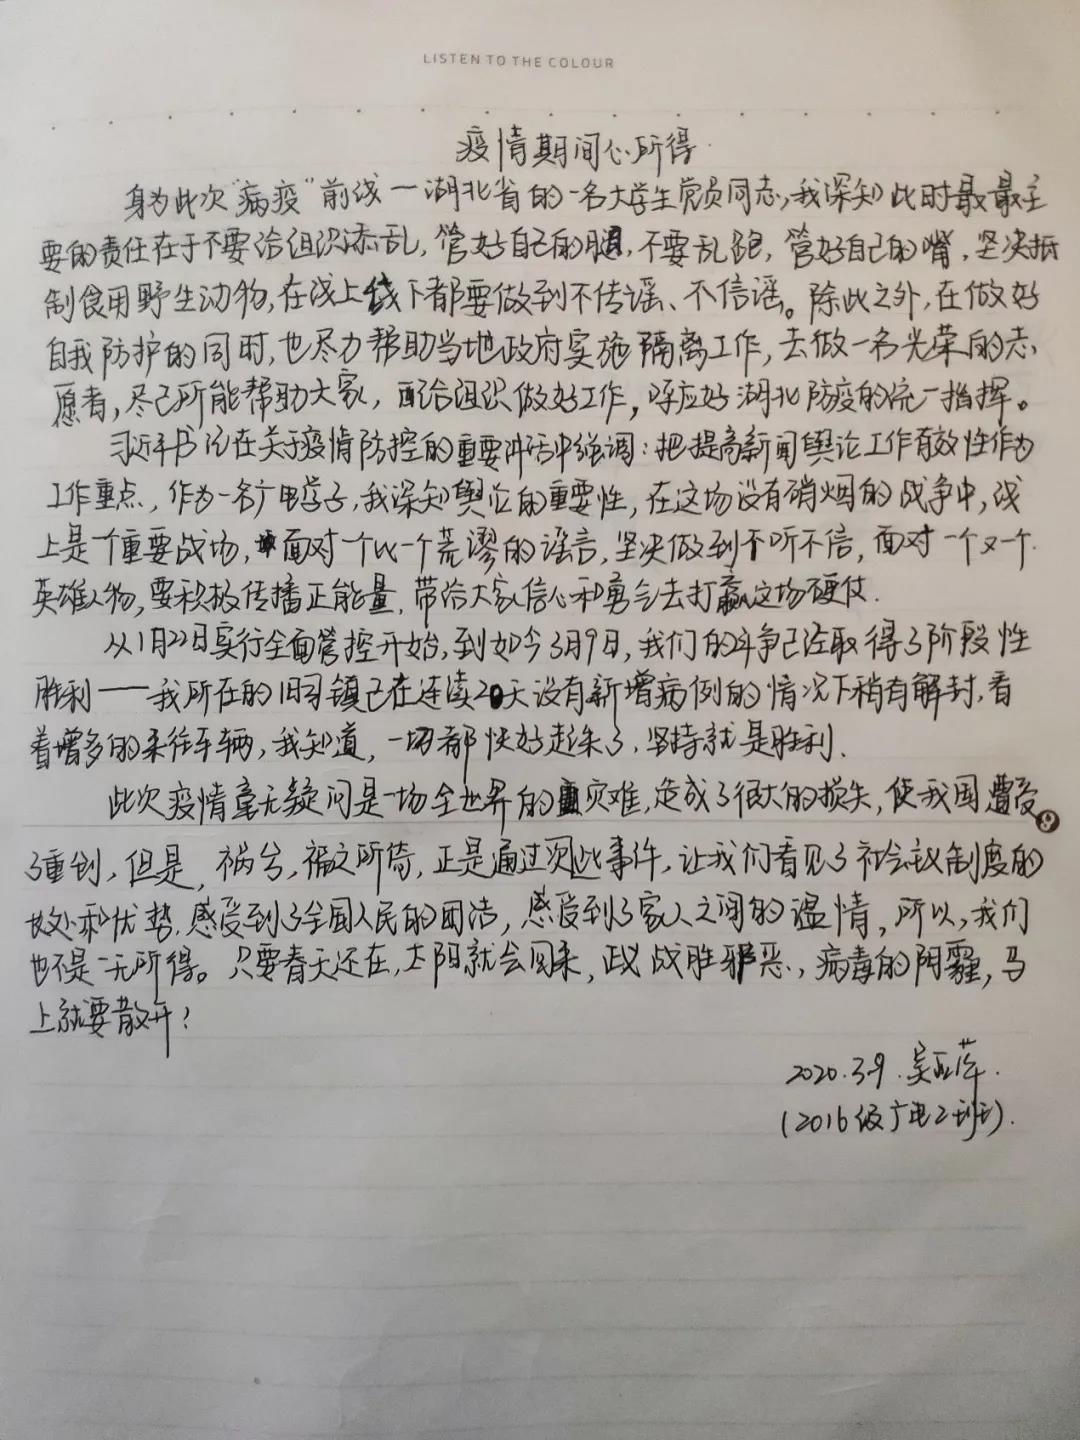 LISTEN TO THE COLOUR
疫情期间心所得
身为此次"病疫"前线一湖北省的一名大学生党员同志,我深知此时最最主
要的责任在于不要给组织添乱,管好自己的腿,不要乱跑,管好自己的嘴,坚决抵
制食用野生动物,在线上线下都要做到不传谣、不信谣。除此之外,在做好
自我防护的同时,也尽力帮助当地政府实施隔离工作,去做一名光荣的志
愿者,尽己所能帮助大家,配合组织做好工作,呼应好湖北防疫的统一指挥。
习近平书记在关于疫情防控的重要讲话中强调:把提高新闻舆论工作有效性作为
工作重点,作为一名广电学子,我深知舆论的重要性,在这场没有硝烟的战争中,线
上是一个重要战场,面对一个比一个荒谬的谣言,坚决做到不听不信,面对一个又一个
英雄人物,要积极传播正能量,带给大家信心和勇气去打赢这场硬仗.
从1月22日实行全面管控开始,到如今3月9日,我们的斗争已经取得了阶段性
胜利——我所在的旧司镇已在连续20天没有新增病例的情况下稍有解封,看
着增多的来往车辆,我知道,一切都快好起来了,坚持就是胜利.
此次疫情毫无疑问是一场全世界的灾难,造成了很大的损失,使我国遭受
9
了重创,但是,祸兮,福之所倚,正是通过次此事件,让我们看见了社会主义制度的
好处和优势,感受到了全国人民的团结,感受到了家人之间的温情,所以,我们
也不是一无所得。只要春天还在,太阳就会回来,正义战胜邪恶,病毒的阴霾,马
上就要散开!
2020.3.9.
(2016级广电2班).